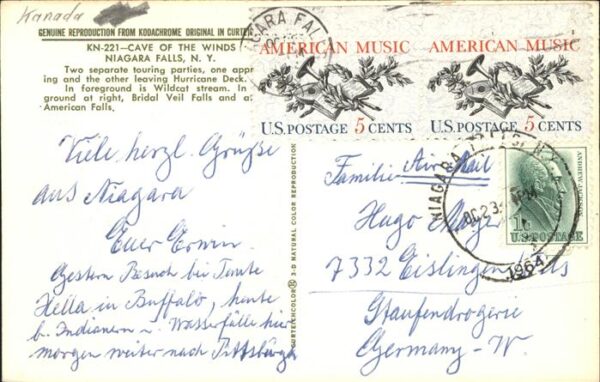 Kanada
GENUINE REPRODUCTION FROM KODACHROME ORIGINAL IN CURTEI
KN-221—CAVE OF THE WINDS
NIAGARA FALLS, N. Y.
Two separate touring parties, one appr
ing and the other leaving Hurricane Deck.
In foreground is Wildcat stream. In
ground at right, Bridal Veil Falls and a
American Falls.
Viele herzl. Grüße
aus Niagara
Euer Erwin.
Gestern Besuch bei Tante
Hella in Buffalo, heute
b. Indianern u. Wasserfälle hier
morgen weiter nach Pittsburgh
CURTEICHCOLOR 3-D NATURAL COLOR REPRODUCTION
AGARA FALL
AMERICAN MUSIC
U.S. POSTAGE 5 CENTS
AMERICAN MUSIC
U.S. POSTAGE 5 CENTS
NIAGARA N.Y.
OC 23
PM
1964
ANDREW JACKSON
1c
U.S. POSTAGE
Air Mail
Familie
Hugo
7332 Eislingen/Fils
Staufendrogerie
Germany-W.